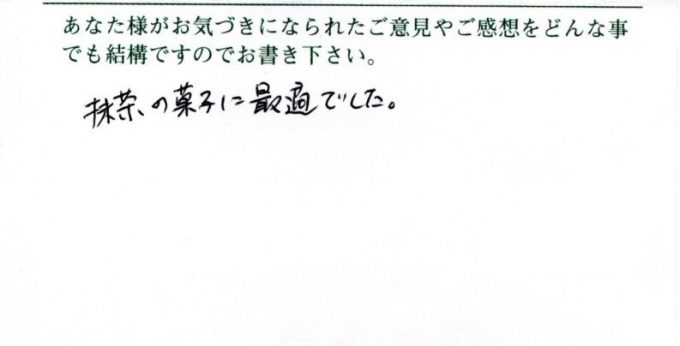 あなた様がお気づきになられたご意見やご感想をどんな事
でも結構ですのでお書き下さい。
抹茶の菓子に最適でした。